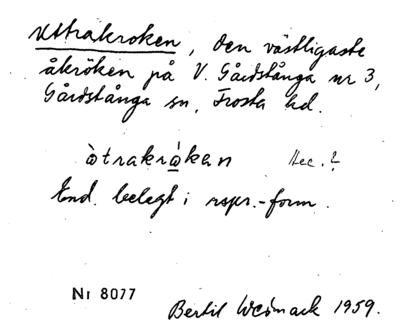 Uttrakroken, den västligaste
åkröken på V. Gårdstånga nr 3,
Gårdstånga sn, Frosta hd.
òtrakrå̀kan Uec.?
End. belagt i rspr.-form.
Nr 8077
Bertil Wedmark 1959.